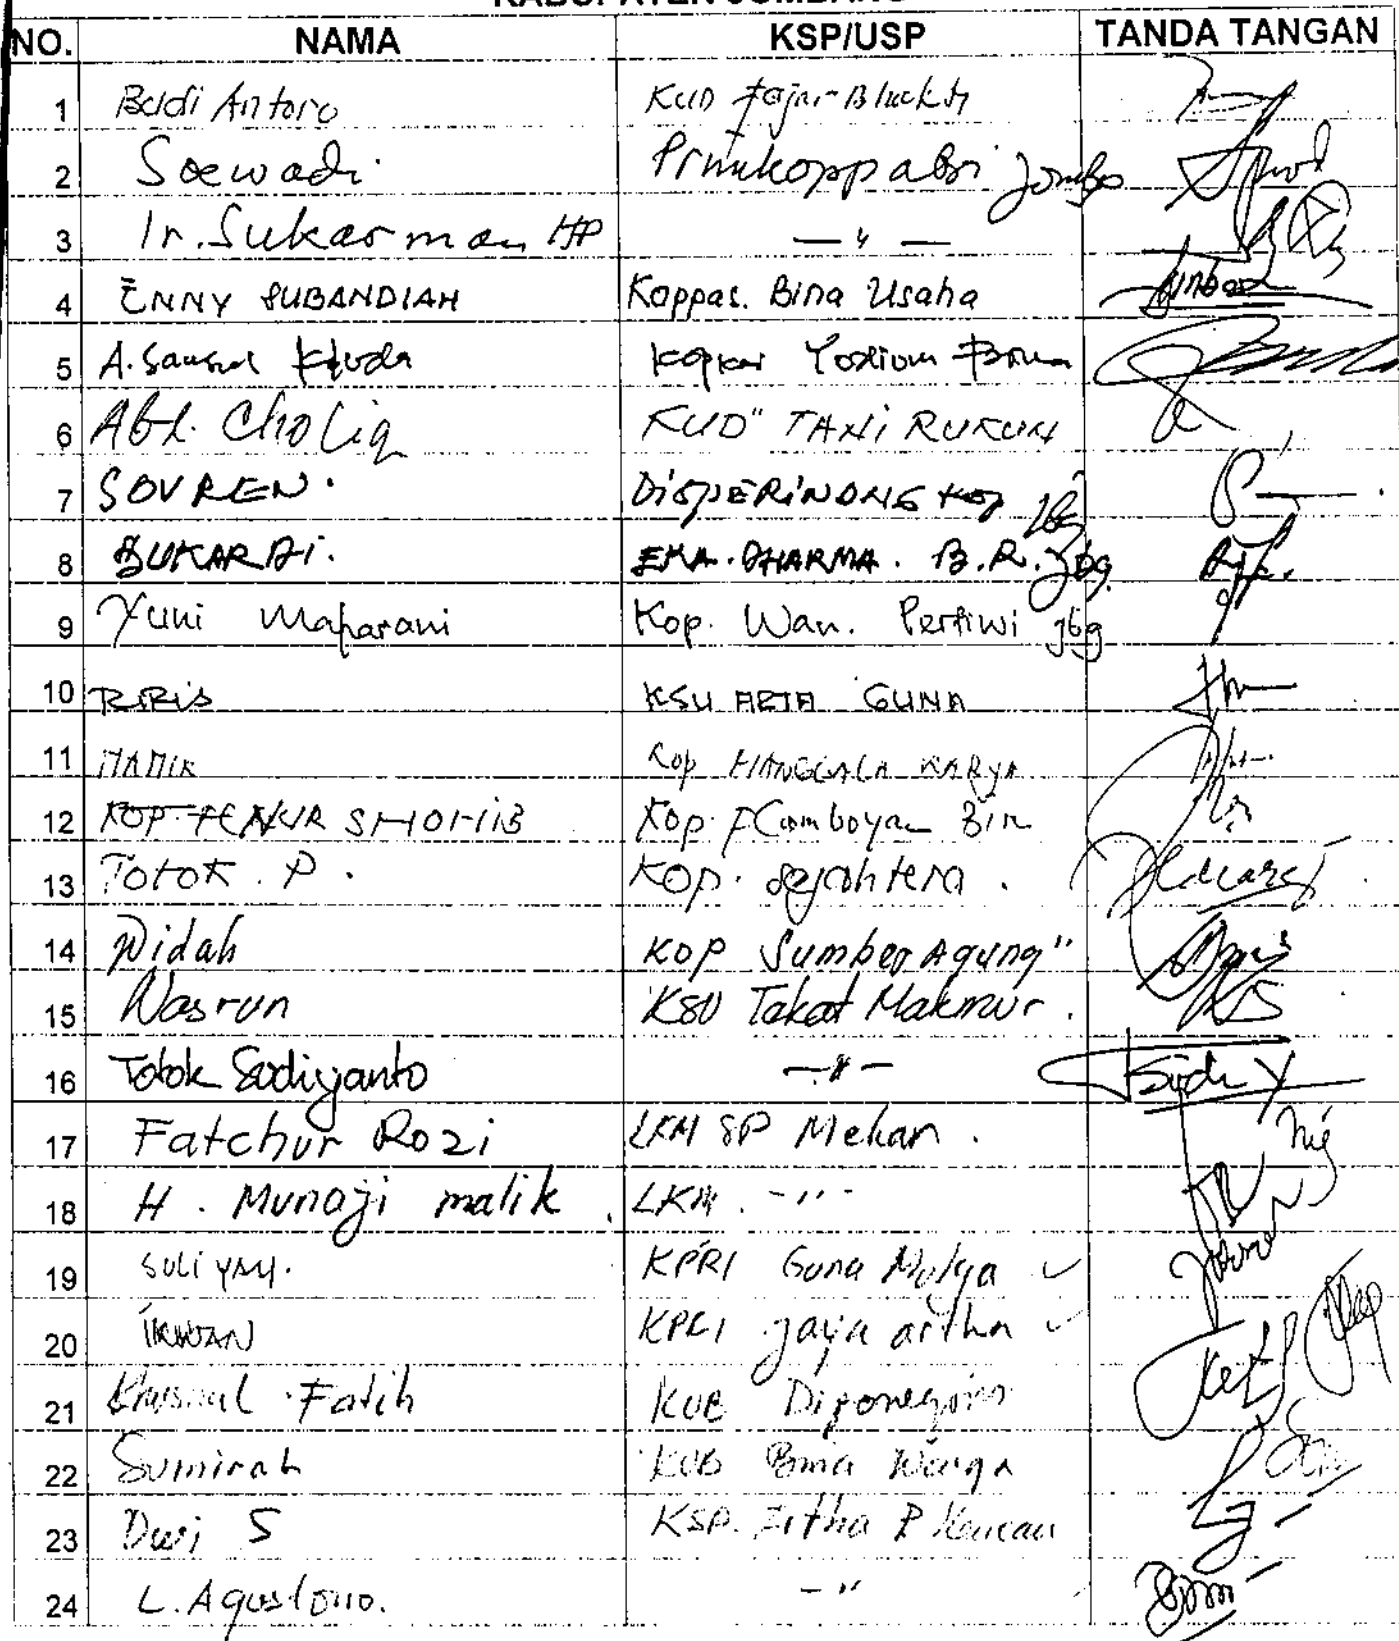 KABUPATEN JOMBANG
NO. NAMA KSP/USP TANDA TANGAN
1 Budi Antoro KUD Fajar Bhakti
2 Soewadi Primkoppabri Jombg
3 Ir. Sukarman HP — " —
4 ENNY SUBANDIAH Koppas. Bina Usaha
5 A. Samsul Khuda Kopkar Yodium
6 Abd. Choliq KUD "TANI RUKUN
7 SOVREN. DISPERINDAG KOP Jbg
8 SUKARDI. EKA. DHARMA. B.R. Jbg
9 Yuni Maharani Kop. Wan. Pertiwi Jbg
10 RIRIS KSU ARTA GUNA
11 MAMIK Kop MANGGALA KARYA
12 SHOHIB Kop.
13 Totok. P. KOP. Sejahtera.
14 Widah KOP Sumber Agung"
15 Wasrun KSU Takat Makmur.
16 Totok Sudiyanto — " —
17 Fatchur Rozi LKM SP Mekan.
18 H. Munaji malik. LKM. - " -
19 SULIYAH. KPRI Guna Mulya ✓
20 IKHWAN KPRI Jaya artha ✓
21 Khusnul Fatih KUB Diponegoro
22 Sumirah KUB Bina Warga
23 Dwi S KSP. Artha
24 L. Agustono. — "